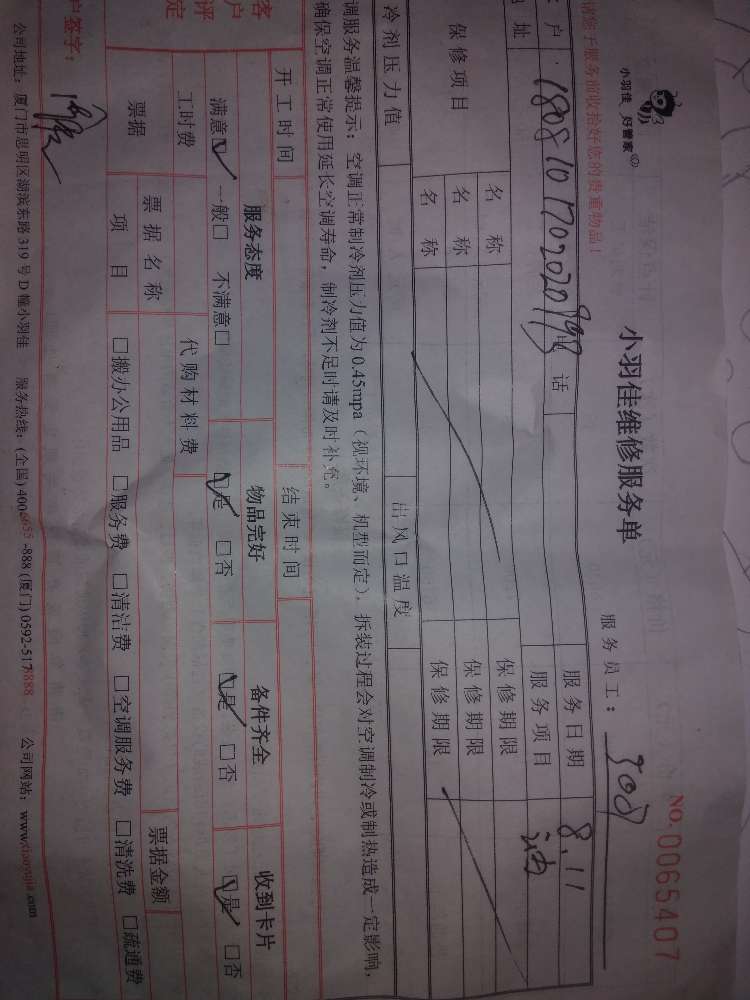 小羽佳 好管家
小羽佳维修服务单
NO. 0065407
服务员工: 308
请您于服务前收拾好您的贵重物品!
户 18081017020209 电话 服务日期 8.11
地址 服务项目
保修项目 名称 保修期限
名称 保修期限
名称 保修期限
冷剂压力值 出风口温度
调服务温馨提示: 空调正常制冷剂压力值为0.45mpa (视环境、机型而定), 拆装过程会对空调制冷或制热造成一定影响,
确保空调正常使用延长空调寿命, 制冷剂不足时请及时补充。
开工时间 结束时间
客户评定 服务态度 物品完好 备件齐全 收到卡片
满意☑ 一般□ 不满意□ ☑是 □否 ☑是 □否 ☑是 □否
工时费 代购材料费
票据 票据名称 票据金额
项目 □搬办公用品 □服务费 □清洁费 □空调服务费 □清洗费 □疏通费
户签字:
公司地址: 厦门市思明区湖滨东路319号D幢小羽佳 服务热线: (全国) 400 -888 (厦门) 0592-517 8888 公司网站: www.xiaoyujia.com